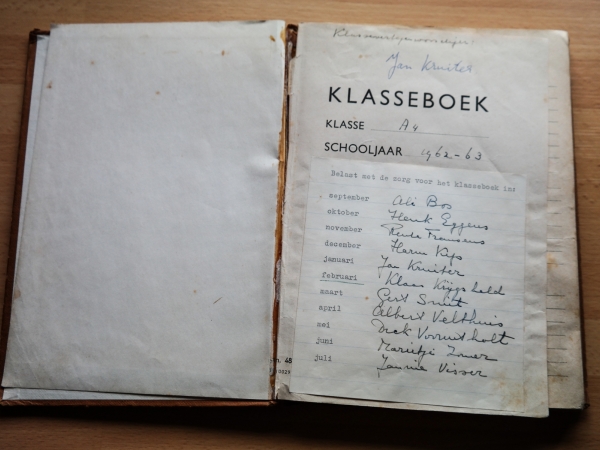 Klassevertegenwoordiger:
Jan Kruiter
KLASSEBOEK
KLASSE A4
SCHOOLJAAR 1962-63
Belast met de zorg voor het klasseboek in:
september Ali Bos
oktober Henk Eggens
november
december Harm Kips
januari Jan Kruiter
februari Klaas
maart Gert Smit
april Albert Velthuis
mei Dick
juni Marietje
juli Jannie Visser
48